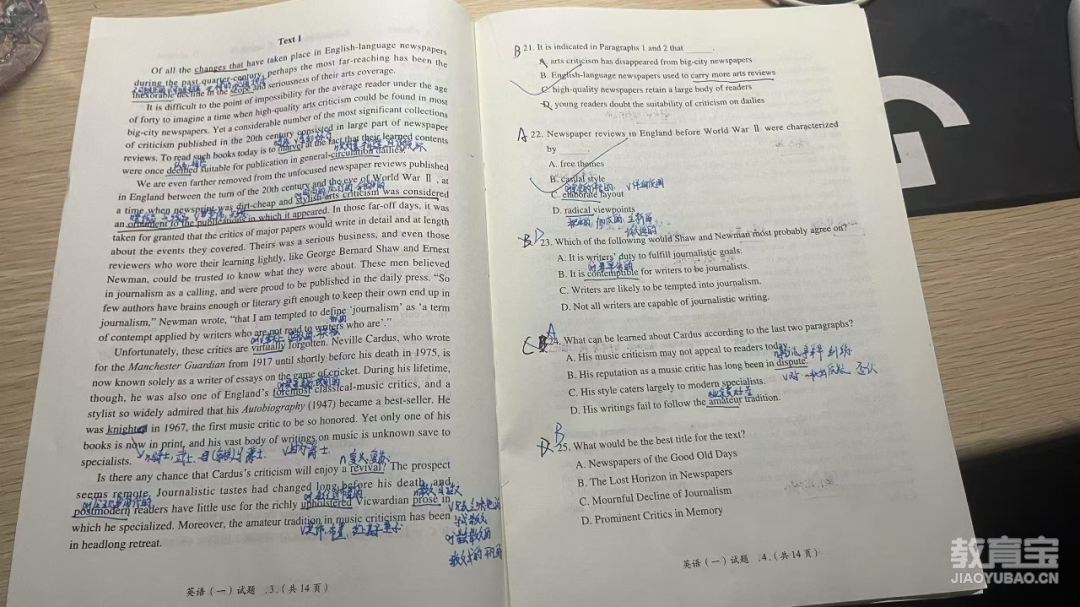 Text 1
Of all the changes that have taken place in English-language newspapers
during the past quarter-century, perhaps the most far-reaching has been the
inexorable decline in the scope and seriousness of their arts coverage.
It is difficult to the point of impossibility for the average reader under the age
of forty to imagine a time when high-quality arts criticism could be found in most
big-city newspapers. Yet a considerable number of the most significant collections
of criticism published in the 20th century consisted in large part of newspaper
reviews. To read such books today is to marvel at the fact that their learned contents
were once deemed suitable for publication in general-circulation dailies.
We are even farther removed from the unfocused newspaper reviews published
in England between the turn of the 20th century and the eve of World War II, at
a time when newsprint was dirt-cheap and stylish arts criticism was considered
an ornament to the publications in which it appeared. In those far-off days, it was
taken for granted that the critics of major papers would write in detail and at length
about the events they covered. Theirs was a serious business, and even those
reviewers who wore their learning lightly, like George Bernard Shaw and Ernest
Newman, could be trusted to know what they were about. These men believed
in journalism as a calling, and were proud to be published in the daily press. “So
few authors have brains enough or literary gift enough to keep their own end up in
journalism,” Newman wrote, “that I am tempted to define ‘journalism’ as ‘a term
of contempt applied by writers who are not read to writers who are’.”
Unfortunately, these critics are virtually forgotten. Neville Cardus, who wrote
for the Manchester Guardian from 1917 until shortly before his death in 1975, is
now known solely as a writer of essays on the game of cricket. During his lifetime,
though, he was also one of England's foremost classical-music critics, and a
stylist so widely admired that his Autobiography (1947) became a best-seller. He
was knighted in 1967, the first music critic to be so honored. Yet only one of his
books is now in print, and his vast body of writings on music is unknown save to
specialists.
Is there any chance that Cardus's criticism will enjoy a revival? The prospect
seems remote. Journalistic tastes had changed long before his death, and
postmodern readers have little use for the richly upholstered Vicwardian prose in
which he specialized. Moreover, the amateur tradition in music criticism has been
in headlong retreat.
英语（一）试题 .3.（共14页）
B 21. It is indicated in Paragraphs 1 and 2 that ______.
A. arts criticism has disappeared from big-city newspapers
B. English-language newspapers used to carry more arts reviews
C. high-quality newspapers retain a large body of readers
D. young readers doubt the suitability of criticism on dailies
A 22. Newspaper reviews in England before World War II were characterized
by ______.
A. free themes
B. casual style
C. elaborate layout
D. radical viewpoints
B D 23. Which of the following would Shaw and Newman most probably agree on?
A. It is writers' duty to fulfill journalistic goals.
B. It is contemptible for writers to be journalists.
C. Writers are likely to be tempted into journalism.
D. Not all writers are capable of journalistic writing.
A
C B 24. What can be learned about Cardus according to the last two paragraphs?
A. His music criticism may not appeal to readers today.
B. His reputation as a music critic has long been in dispute.
C. His style caters largely to modern specialists.
D. His writings fail to follow the amateur tradition.
B
D 25. What would be the best title for the text?
A. Newspapers of the Good Old Days
B. The Lost Horizon in Newspapers
C. Mournful Decline of Journalism
D. Prominent Critics in Memory
英语（一）试题 .4.（共14页）
教育宝
JIAOYUBAO.CN